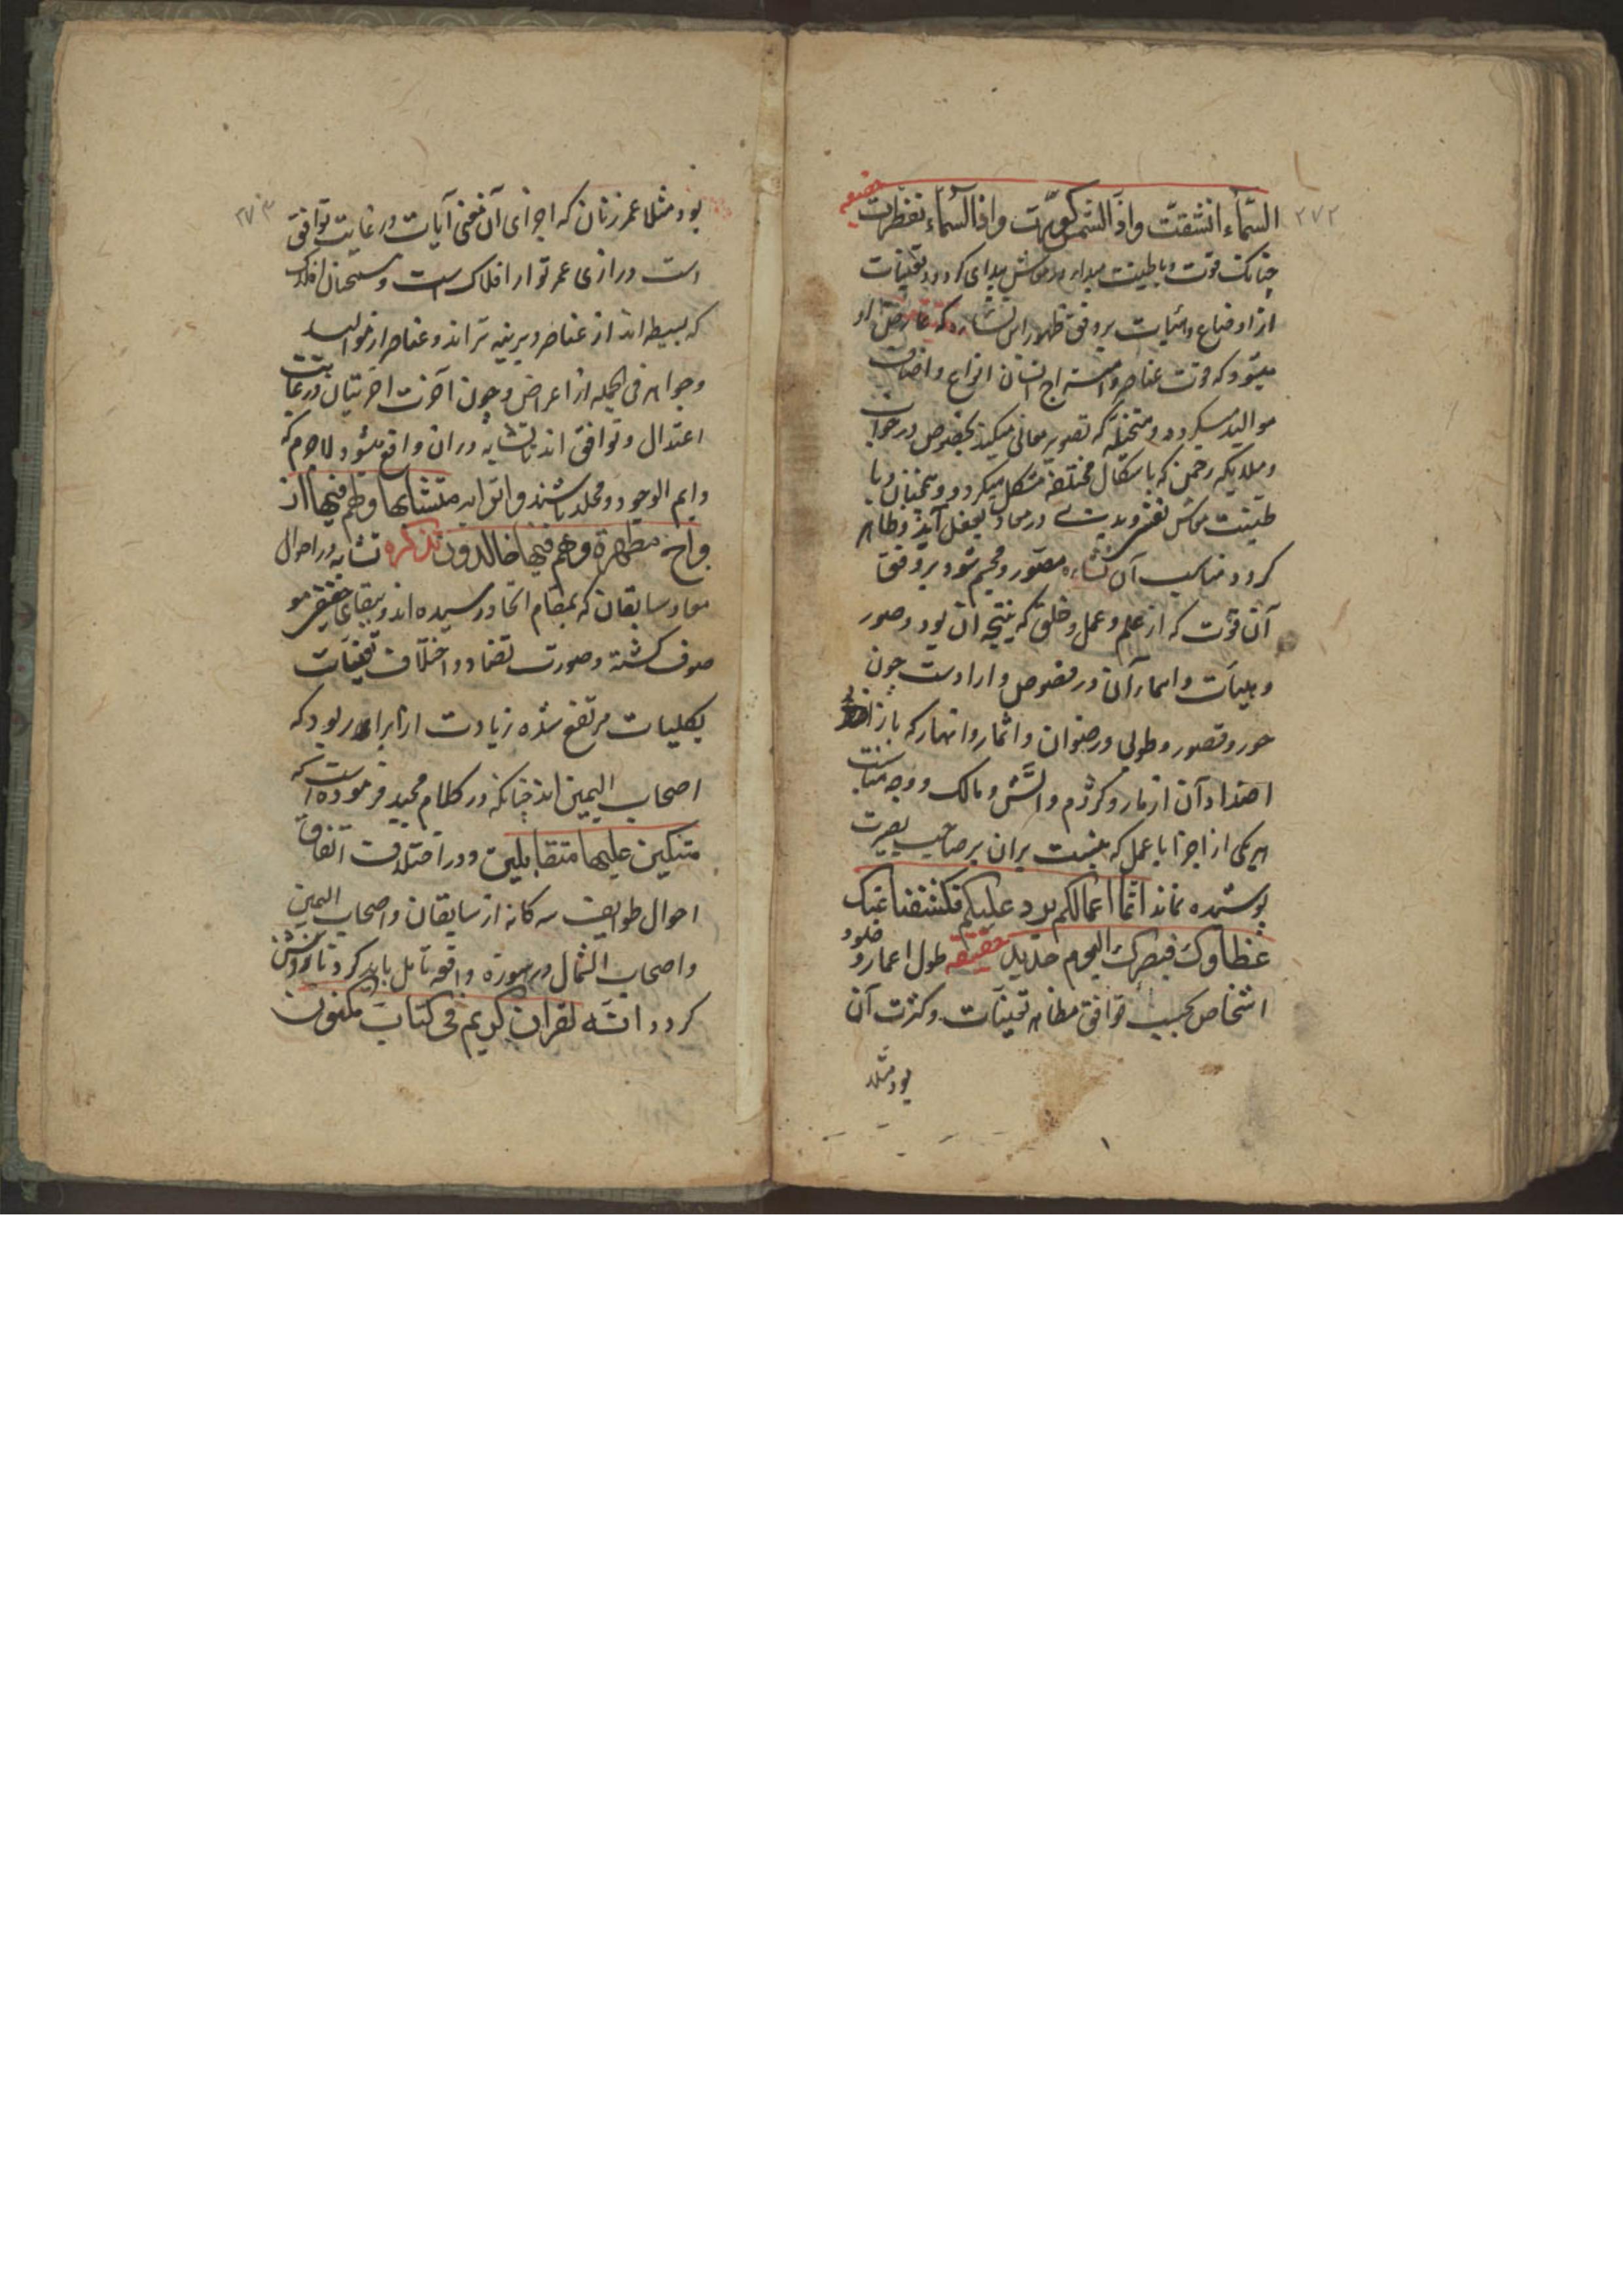 ۲۷۲
السّماء انشقّت واذا الشمس کوّرت واذا السّماء انفطرت حقیقه
چنانک قوّت و باطنیت مبداء در موطن مبدای کردد و تعینات
از اوضاع و هیئات بر وفق ظهور این نشاء که عارض او
میشود که قوت عناصر و امتزاج انسان انواع و اصناف
موالید میکردد و متخیله که تصویر معانی میکند بخصوص در خواب
و ملایکه رحمن که باشکال مختلفه متشکل میکردد و همچنان و با
طینت موطن نفس و بدیت در معاد بفعل آید و ظاهر
کردد مناسب آن نشاء مصوّر و مجسم شود بر وفق
آن قوّت که از علم و عمل و خلق که نتیجه آن بود و صور
و هیئات و اسماء آن در نصوص وارد است چون
حور و قصور و طوبی و رضوان و اثمار و انهار که بازاء
اضداد آن از مار و کژدم و آتش و مالک و وجه مناسبت
هر یکی از اجزا با عمل که مثبت بر آن بر صاحب بصیرت
پوشیده نماند انّما اعمالکم یرد علیکم فکشفنا عنک
غطاوک فبصرک الیوم حدید حقیقه طول اعمار و خلود
اشخاص بحسب توافق مظاهر تعینات و کثرت آن
بود مثلا
۲۷۳
بود مثلا عمر زمان که اجزای آن یعنی آیات در غایت توافق
است درازی عمر توار افلاک است و سبحان افلاک
که بسیط اند از عناصر دیرینه تر اند و عناصر از موالید
و جواهر فی الجمله از اعراض و چون آخرت اخرتیان در غایت
اعتدال و توافق اند تشابه در آن واقع شود لاجرم که
دایم الوجود و مخلد باشند و اتوا به متشابها ولهم فیها از
واج مطهرة وهم فیها خالدون تذکره تشابه در احوال
معاد سابقان که بمقام اتحاد رسیده اند و ببقای حقیقی مو
صوف کشته و صورت تضاد و اختلاف تعینات
بکلیات مرتفع شده زیادت از ابرار بود که
اصحاب الیمین اند چنانکه در کلام مجید فرموده است که
متکین علیها متقابلین و در اختلاف اتفاق
احوال طوایف سه کانه از سابقان و اصحاب الیمین
و اصحاب الشمال در سوره واقعه تامل باید کرد تا روشن
کردد انّه لقران کریم فی کتاب مکنون